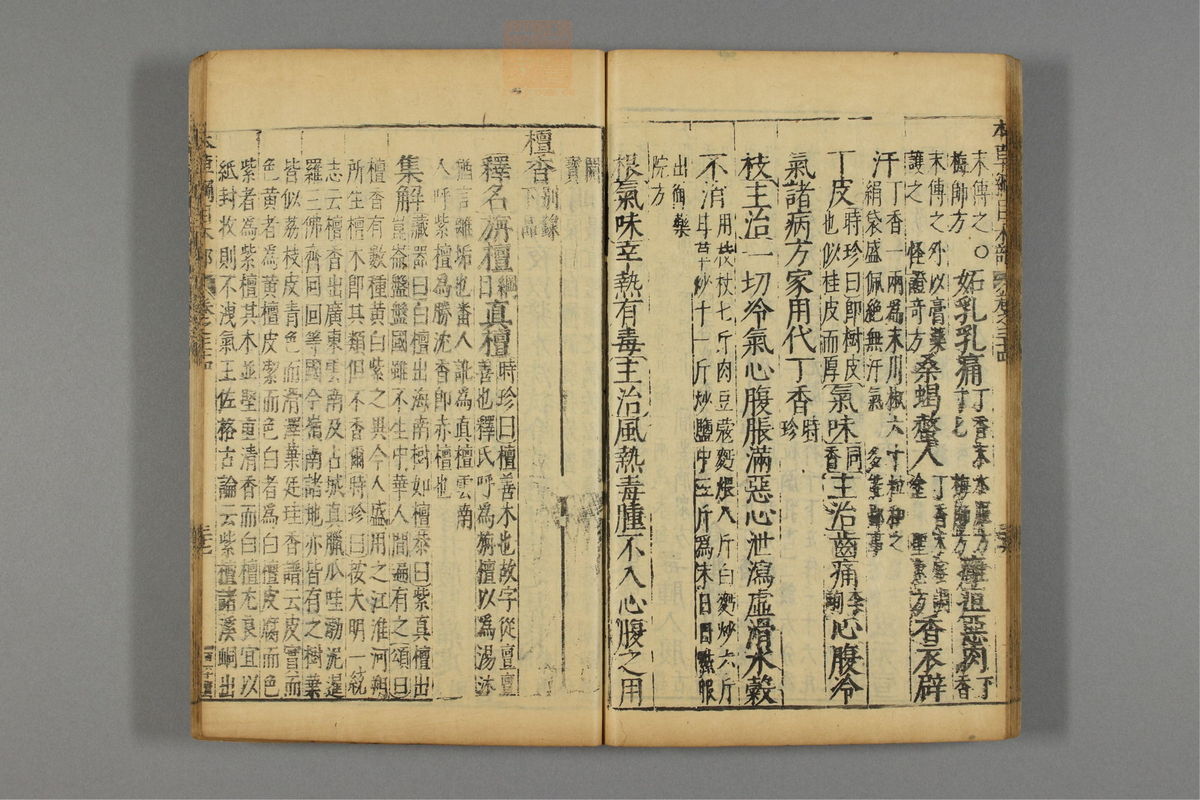 本草綱目木部 卷之三十四 三六
末傳之。○妬乳乳痛 丁香末水 癰疽惡肉 丁香
梅師方
末傳之外以膏藥護之 怪證奇方 桑蝎螫人 丁香末蜜調塗 聖惠方 香衣辟
汗 丁香一兩爲末川椒六十粒和之絹袋盛佩絕無汗氣 多能鄙事
丁皮 時珍曰即樹皮也似桂皮而厚 氣味 同香 主治齒痛 李珣 心腹冷
氣諸病方家用代丁香 時珍
枝主治一切冷氣心腹脹滿惡心泄瀉虛滑水穀
不消 用枝杖七斤肉豆蔻麪煨八斤白麪炒六斤甘草炒十一斤炒鹽中三斤爲末日日點服
出御藥院方
根氣味辛熱有毒主治風熱毒腫不入心腹之用
開寶
檀香 別錄下品
釋名旃檀 綱目 真檀 時珍曰檀善木也故字從亶亶善也釋氏呼爲旃檀以爲湯沐
猶言離垢也番人訛爲真檀雲南
人呼紫檀爲勝沉香即赤檀也
集解 藏器曰白檀出海南樹如檀恭曰紫真檀出崑崙盤盤國雖不生中華人間遍有之頌曰
檀香有數種黄白紫之異今人盛用之江淮河朔
所生檀木即其類但不香爾時珍曰按大明一統
志云檀香出廣東雲南及占城真臘瓜哇渤泥暹
羅三佛齊回回等國今嶺南諸地亦皆有之樹葉
皆似荔枝皮青色而滑澤葉廷珪香譜云皮實而
色黄者爲黄檀皮潔而色白者爲白檀皮腐而色
紫者爲紫檀其木並堅重清香而白檀尤良宜以
紙封收則不洩氣王佐格古論云紫檀諸溪峒出
本草綱目木部 卷之三十四 三七